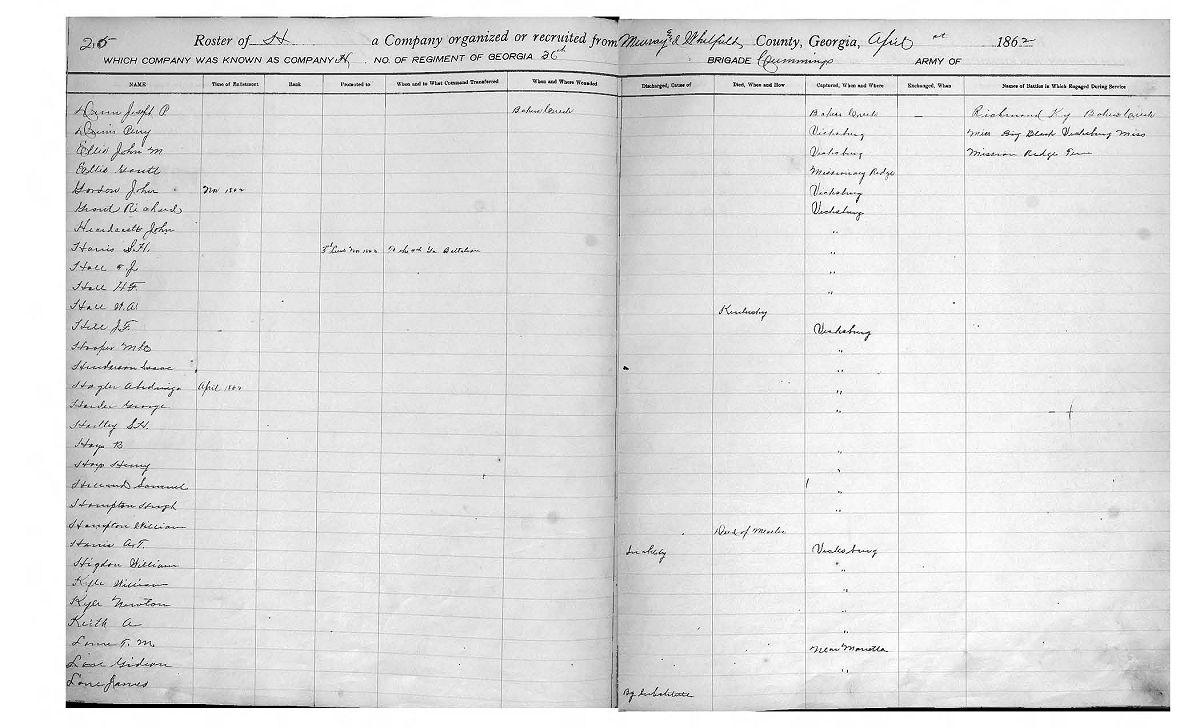 25 Roster of H a Company organized or recruited from Murray & Whitfield County, Georgia, April at 1862
WHICH COMPANY WAS KNOWN AS COMPANY H, NO. OF REGIMENT OF GEORGIA 36th BRIGADE Cummings ARMY OF
NAME Time of Enlistment Rank Promoted to When and to What Command Transferred When and Where Wounded Discharged, Cause of Died, When and How Captured, When and Where Exchanged, When Names of Battles in Which Engaged During Service
Joseph P Bakers Creek Bakers Creek — Richmond Ky Bakers Creek
Perry Vicksburg Miss Big Black Vicksburg Miss
Ellis John M Vicksburg Mission Ridge Tenn
Ellis Missionary Ridge
Gordon John Nov 1862 Vicksburg
Grant Richard Vicksburg
John "
Harris S.H. 3d Lieut Nov 1862 To the Ga Battalion "
Hall J "
Hall H.F. "
Hall W.A. Kentucky
Hill J.F. Vicksburg
Hooper "
Henderson Isaac "
April 1862 "
George "
S.H.
Hays B "
Hays Henry "
Samuel "
Hampton Hugh "
Hampton William Died of Measles
Harris A.T. Vicksburg
Higdon William "
Kyle William "
Kyle Newton "
Keith A "
Love T. M. Near Marietta
Love Gideon "
Love James By Substitute